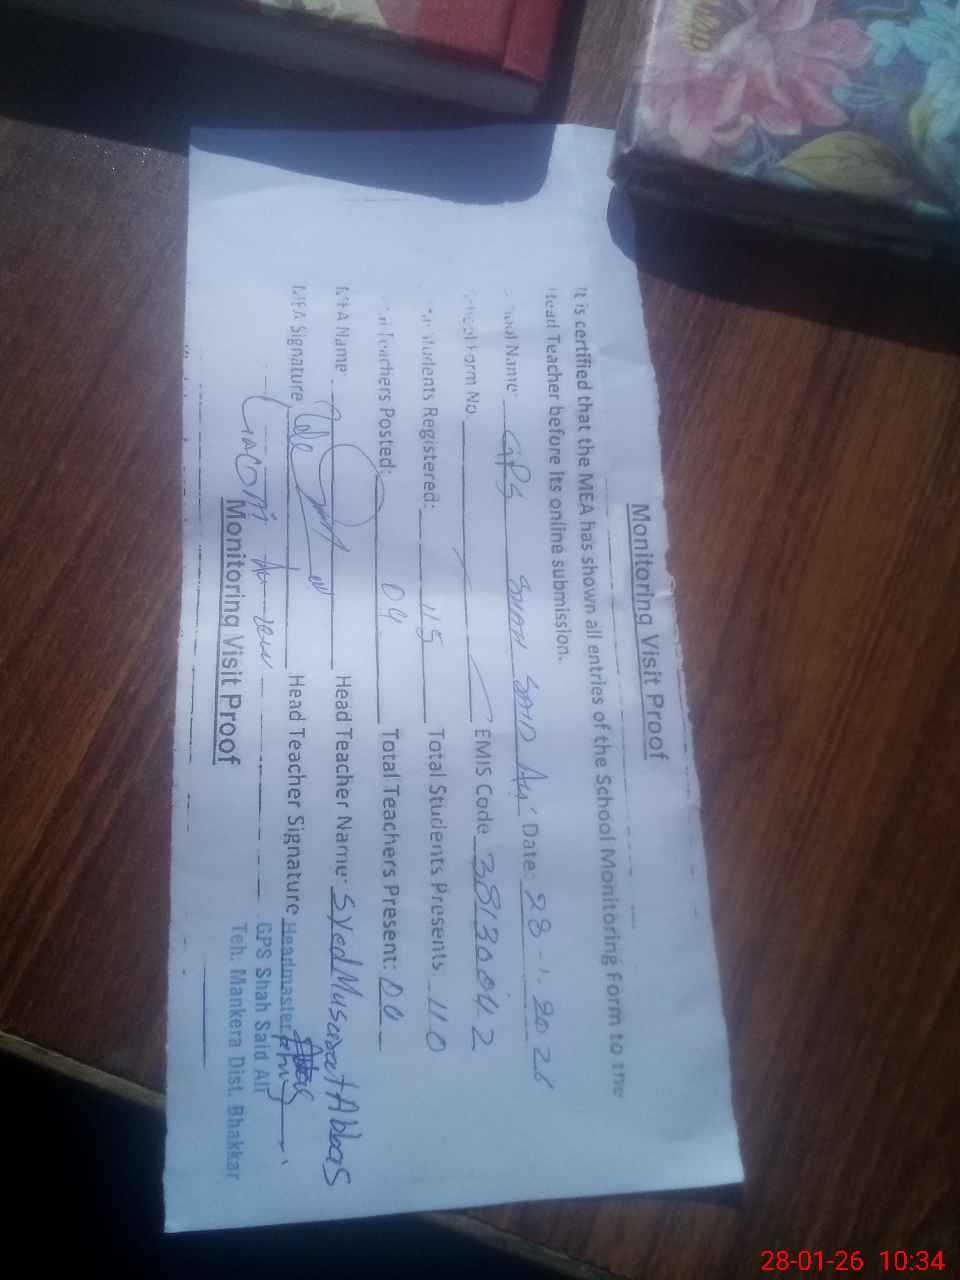 Monitoring Visit Proof
It is certified that the MEA has shown all entries of the School Monitoring Form to the
Head Teacher before its online submission.
School Name: GPS SHAH SAID Ali Date: 28-1-2026
School Form No EMIS Code 38130042
Students Registered: 115 Total Students Presents: 110
Teachers Posted: 04 Total Teachers Present: 04
MEA Name: Head Teacher Name: Syed Musarat Abbas
MEA Signature Head Teacher Signature Headmaster
GPS Shah Said Ali
Teh. Mankera Dist. Bhakkar
Monitoring Visit Proof
28-01-26 10:34